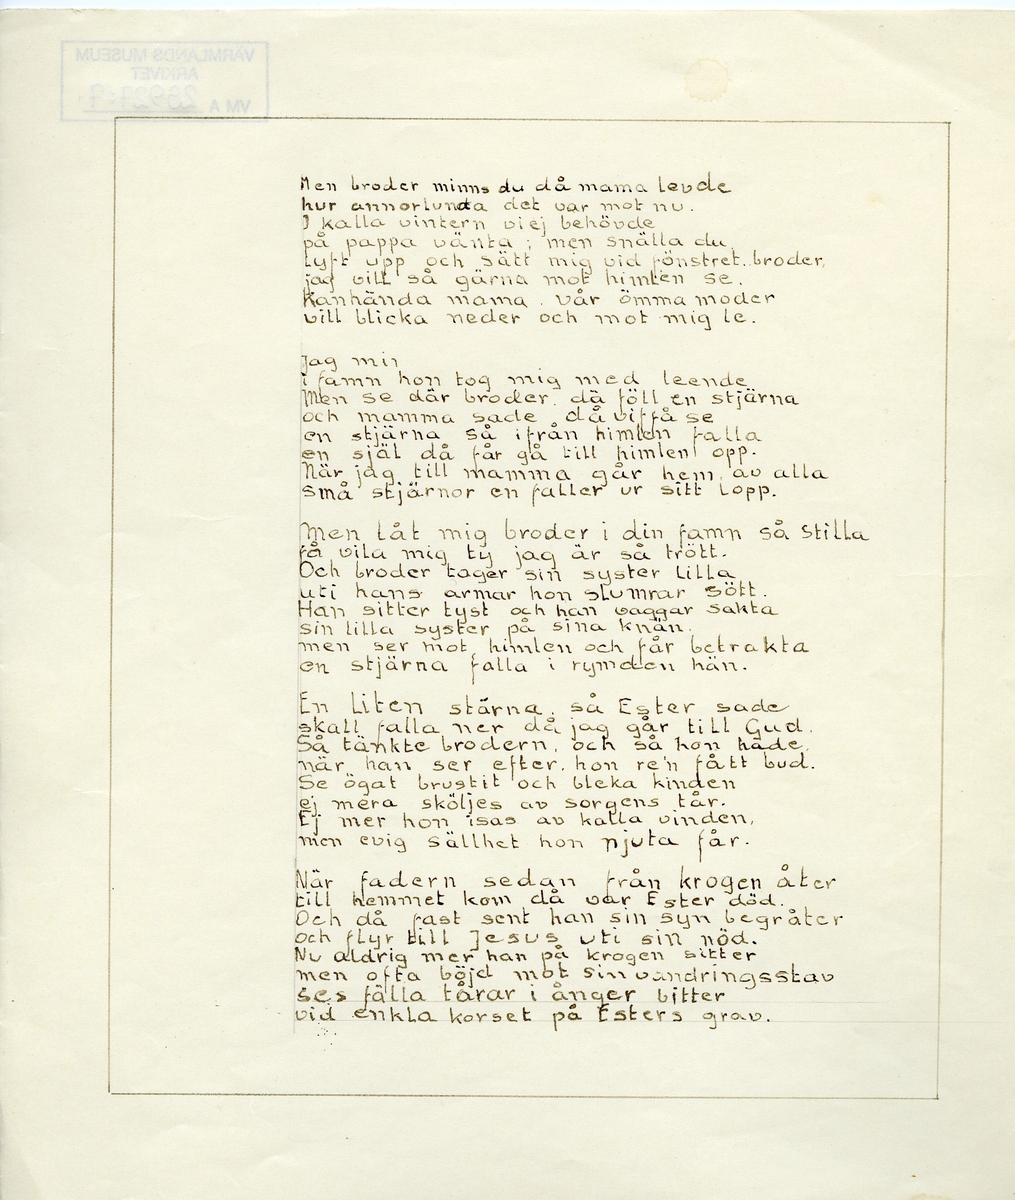 VÄRMLANDS MUSEUM
ARKIVET
VM A
Men broder minns du då mama levde
hur annorlunda det var mot nu.
I kalla vintern vi ej behövde
på pappa vänta ; men snälla du
lyft upp och sätt mig vid fönstret. broder,
jag vill så gärna mot himlen se.
Kanhända mama. vår ömma moder
vill blicka neder och mot mig le.
Jag min
i famn hon tog mig med leende
Men se där broder. då föll en stjärna
och mamma sade. då vi få se
en stjärna så ifrån himlen falla
en själ då får gå till himlen opp.
När jag till mamma går hem, av alla
små stjärnor en faller ur sitt lopp.
Men låt mig broder i din famn så stilla
få vila mig ty jag är så trött.
Och broder tager sin syster lilla
uti hans armar hon slumrar sött.
Han sitter tyst och han vaggar sakta
sin lilla syster på sina knän.
men ser mot himlen och får betrakta
en stjärna falla i rymden hän.
En liten stärna. så Ester sade
skall falla ner då jag går till Gud.
Så tänkte brodern, och så hon hade,
när han ser efter, hon re'n fått bud.
Se ögat brustit och bleka kinden
ej mera sköljes av sorgens tår.
Ej mer hon isas av kalla vinden,
men evig sällhet hon njuta får.
När fadern sedan från krogen åter
till hemmet kom då var Ester död.
Och då fast sent han sin syn begråter
och flyr till Jesus uti sin nöd.
Nu aldrig mer han på krogen sitter
men ofta böjd mot sin vandringsstav
ses fälla tårar i ånger bitter
vid enkla korset på Esters grav.